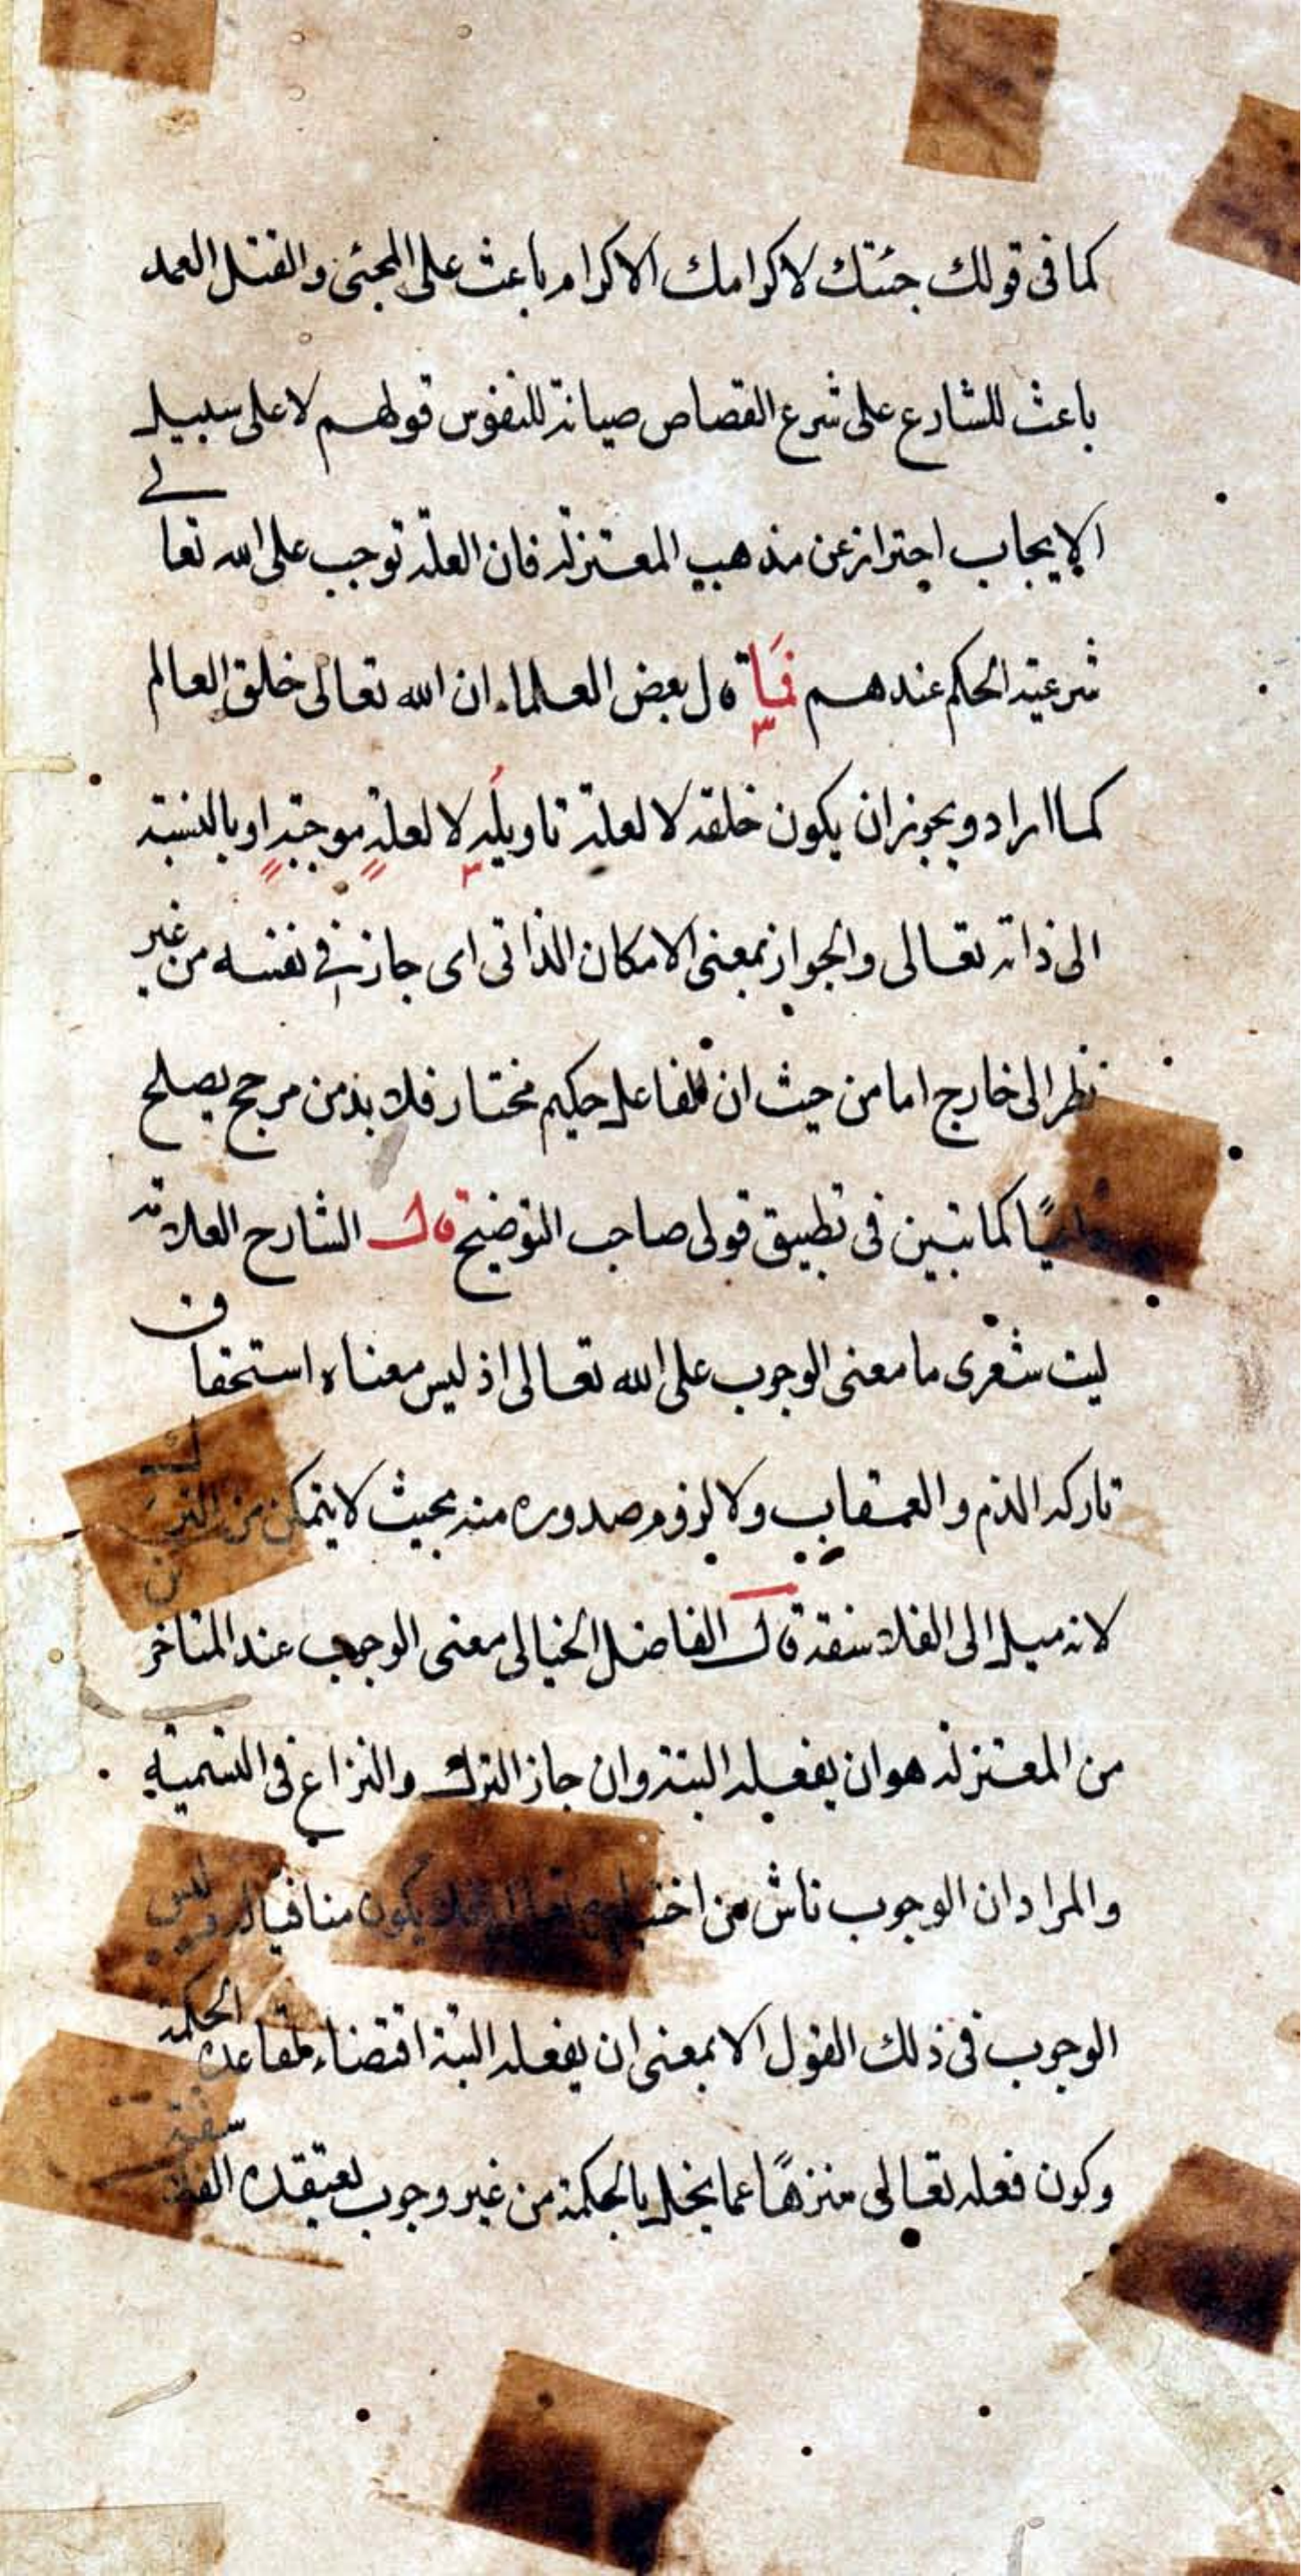 كما فى قولك جئتك لاكرامك الاكرام باعث على المجئى والقتل العمد
باعث للشارع على شرع القصاص صيانة للنفوس قولهم لا على سبيل
الايجاب احتراز عن مذهب المعتزلة فان العلة توجب على الله تعالى
شرعية الحكم عندهم فما قال بعض العلماء ان الله تعالى خلق العالم
كما اراد ويجوز ان يكون خلقه لا لعلة تاويله لا لعلةٍ موجبةٍ او بالنسبة
الى ذاته تعالى والجواز بمعنى الامكان الذاتى اى جاز فى نفسه من غير
نظر الى خارج اما من حيث ان الفاعل حكيم مختار فلا بد من مرجح يصلح
كما تبين فى تطبيق قولى صاحب التوضيح قال الشارح العلامة
ليت شعرى ما معنى الوجوب على الله تعالى اذ ليس معناه استحقاق
تاركه الذم والعقاب ولا لزوم صدوره منه بحيث لا يتمكن من الترك
لانه ميل الى الفلاسفة قال الفاضل الخيالى معنى الوجوب عند المتاخرين
من المعتزلة هو ان يفعله البتة وان جاز الترك والنزاع فى التسمية
والمراد ان الوجوب ناش من اختياره تعالى فلا يكون منافيا له وليس
الوجوب فى ذلك القول الا بمعنى ان يفعله البتة اقتضاء لقاعدة الحكمة
وكون فعله تعالى منزهًا عما يخل بالحكمة من غير وجوب يعتقده الفلاسفة